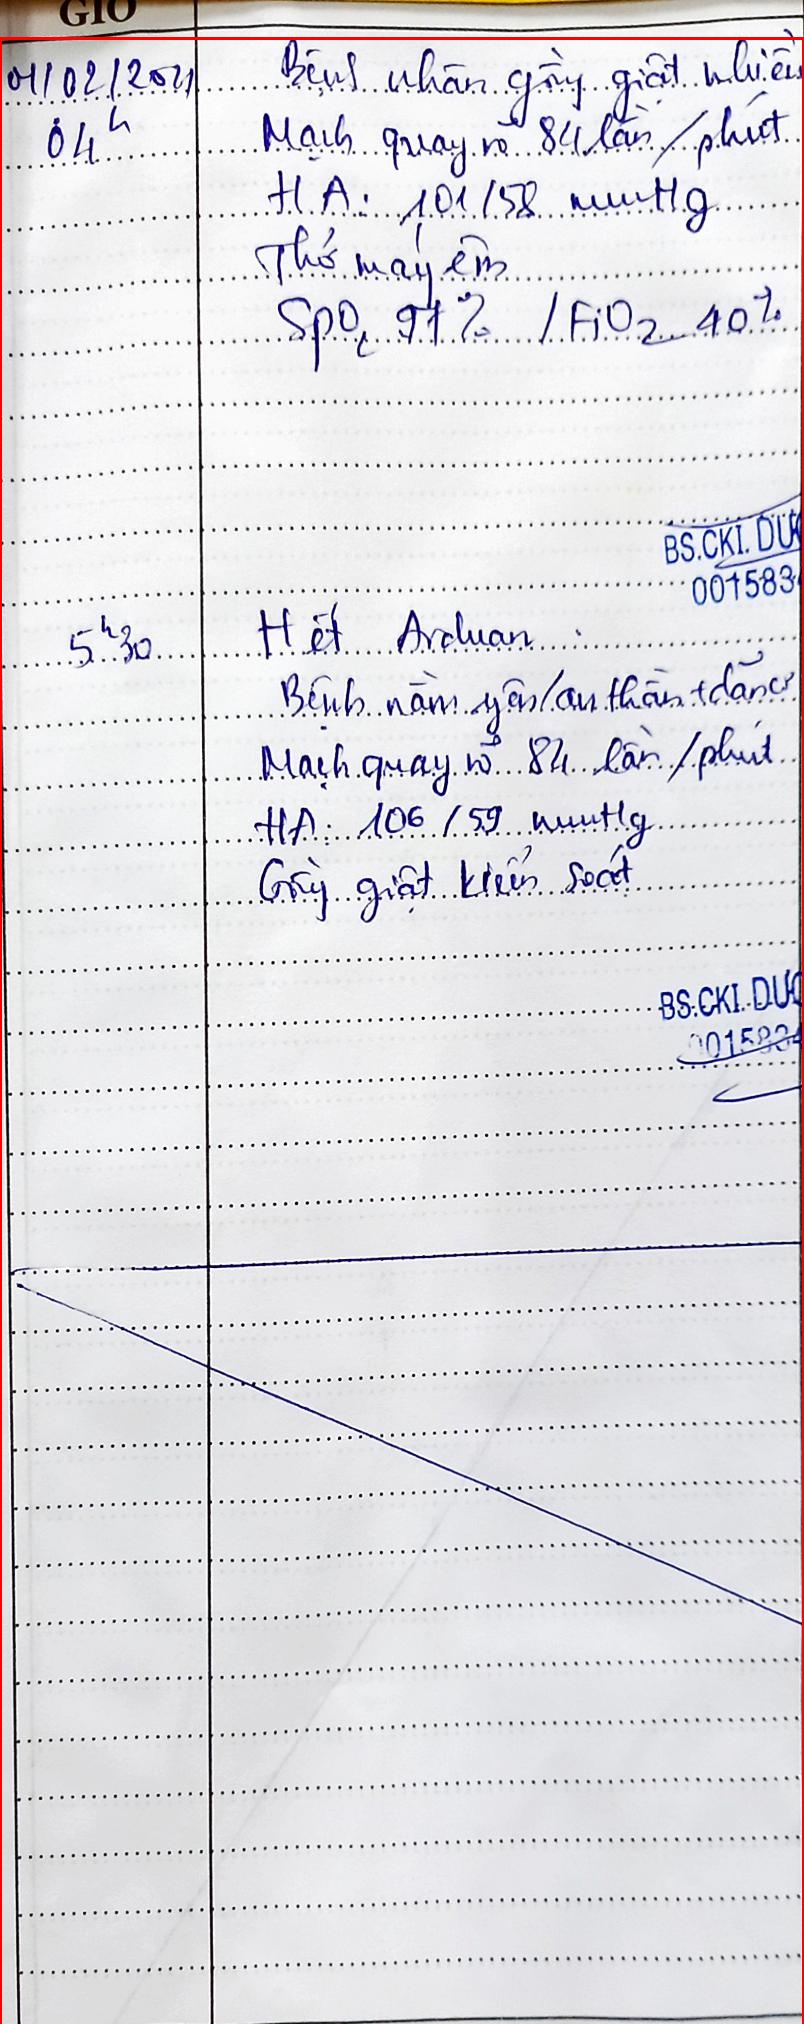 GIỜ
01/02/2021 Bệnh nhân gồng giật nhiều
04h Mạch quay rõ 84 lần/phút
HA: 101/58 mmHg
Thở máy êm
SpO2 97% / FiO2 40%
BS.CKI. DƯƠ
001583
5h30 Hết Arduan
Bệnh nằm yên/an thần + dãn cơ
Mạch quay rõ 84 lần/phút
HA: 106/59 mmHg
Gồng giật kiểm soát
BS.CKI. DƯƠ
001583